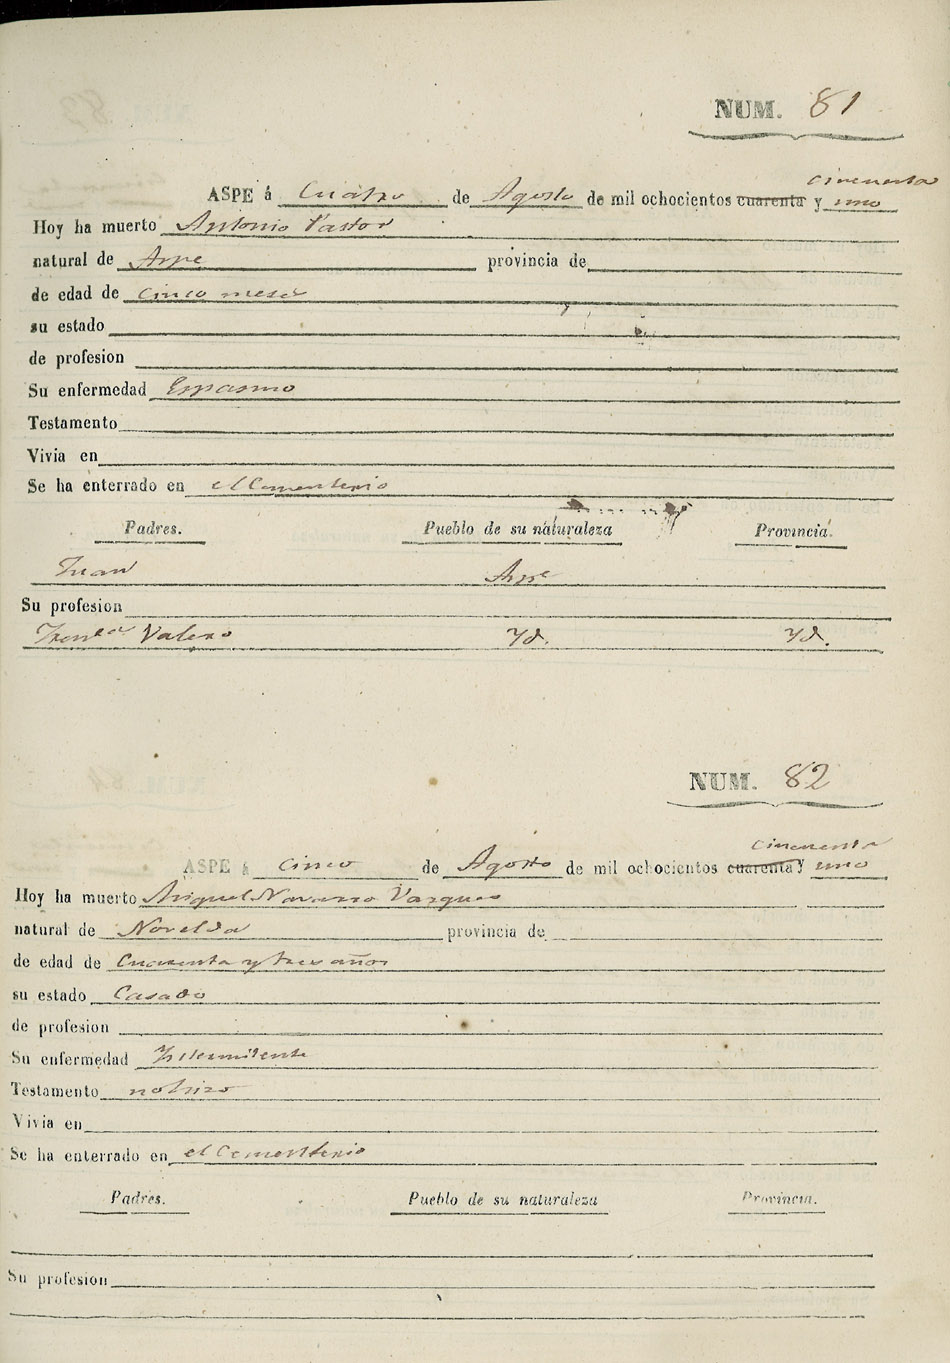 NUM. 81
cincuenta
ASPE á Cuatro de Agosto de mil ochocientos cuarenta y uno
Hoy ha muerto Antonio Pastor
natural de Aspe provincia de
de edad de cinco meses
su estado
de profesion
Su enfermedad Espasmo
Testamento
Vivia en
Se ha enterrado en el Cementerio
Padres. Pueblo de su naturaleza Provincia.
Juan Aspe
Su profesion
Valero Yd. Yd.
NUM. 82
cincuenta
ASPE á cinco de Agosto de mil ochocientos cuarenta y uno
Hoy ha muerto Miguel Navarro Vazques
natural de Novelda provincia de
de edad de Cuarenta y tres años
su estado Casado
de profesion
Su enfermedad Intermitente
Testamento no hizo
Vivia en
Se ha enterrado en el Cementerio
Padres. Pueblo de su naturaleza Provincia.
Su profesion